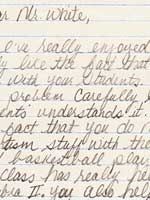 ar Mr. White,
I've really enjoyed
ly like the fact that
with your students.
problem carefully
ents understands it.
fact that you do m
tism stuff with the
basketball play
class has really he
bra II. You also help